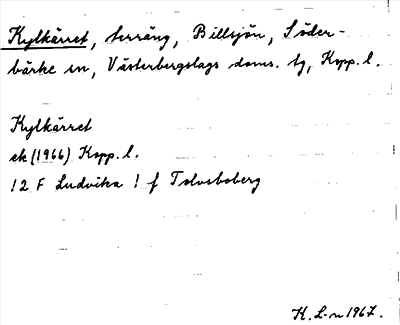 Kylkärret, terräng, Billsjön, Söder-
bärke sn, Västerbergslags doms. tg, Kopp. l.
Kylkärret
ek (1966) Kopp. l.
12 F Ludvika ! f Tolvsboberg
K. L-n 1967.